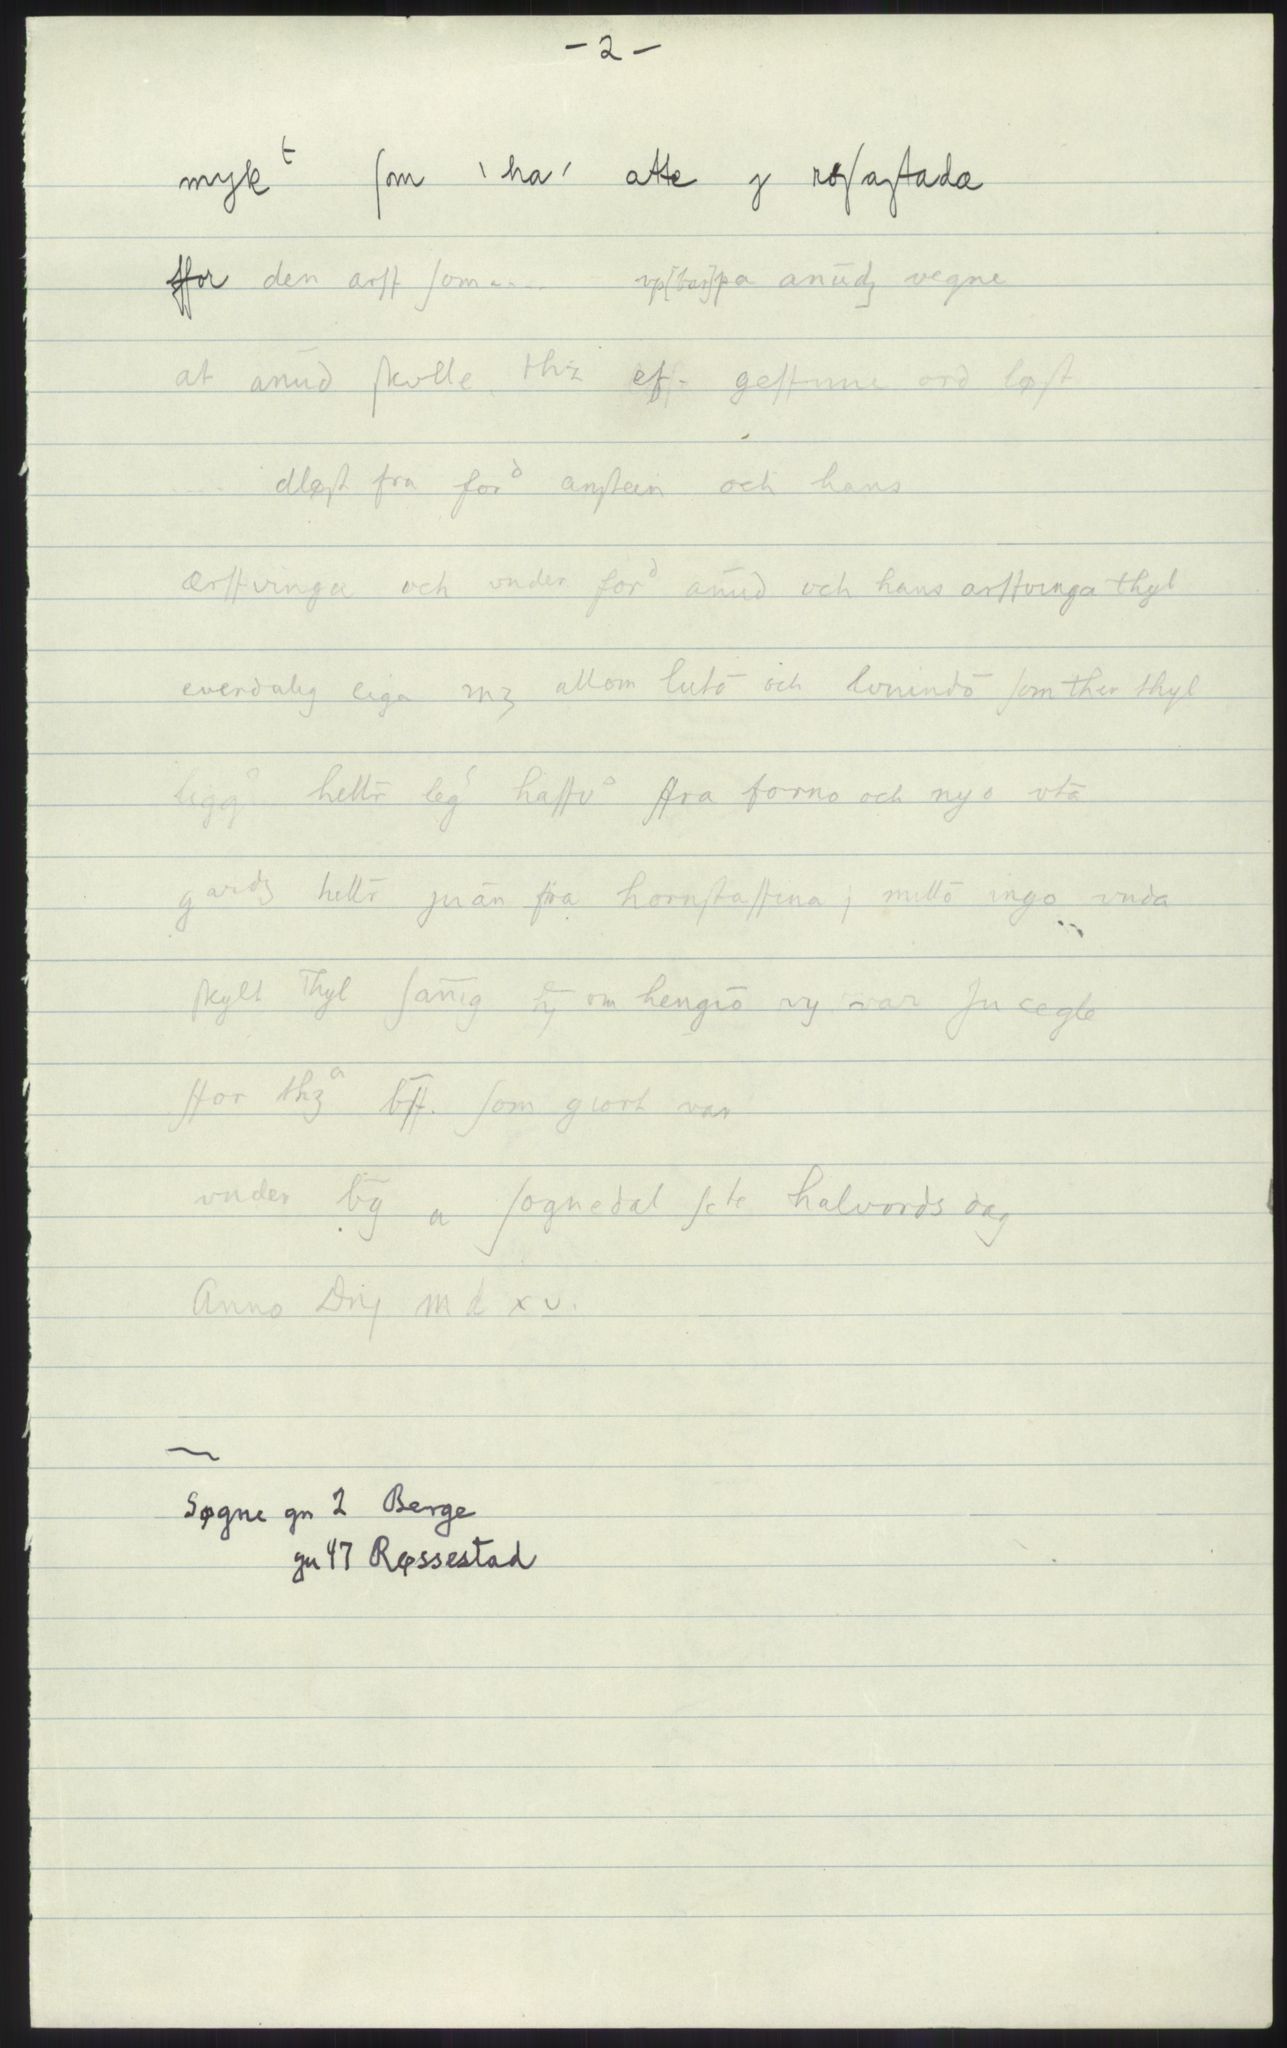 - 2 -
mykᵗ ſom 'ha' atte j røſaſtada
ffor den arff ſom.... vp[bar] pa anūdꝫ vegne
at anūd ſkulle thꝫ eſ- geffnne ord løſt
.... dløſt fra forᵈ anſtein och hans
ærffvinga och vnder forᵈ anūd och hans arffvinga thyl
everdalig eiga mꝫ allom lutō och lonindō ſom ther thyl
ligg° hellr leg' haffv° ffra forno och nyo vtā
gardꝫ hellr jnān fra hornſtaffna j millō ingo vnda
ſkylt Thyl ſanīg hengiō vy var Jncegle
ffor thꝫᵃ bff. ſom giort var
vnder bg a ſognedal ſcte halvords dag
Anno Dnj m d x v.
~
Søgne gn 2 Berge
gn 47 Røssestad